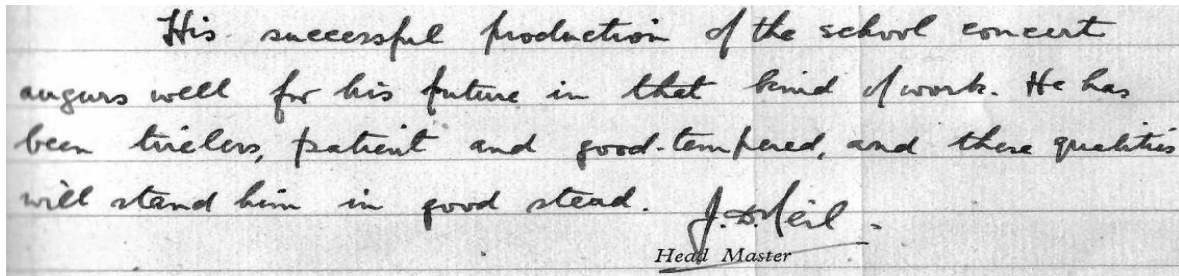 His successful production of the school concert
augurs well for his future in that kind of work. He has
been tireless, patient and good-tempered, and these qualities
will stand him in good stead. J.D. Neil.
Head Master